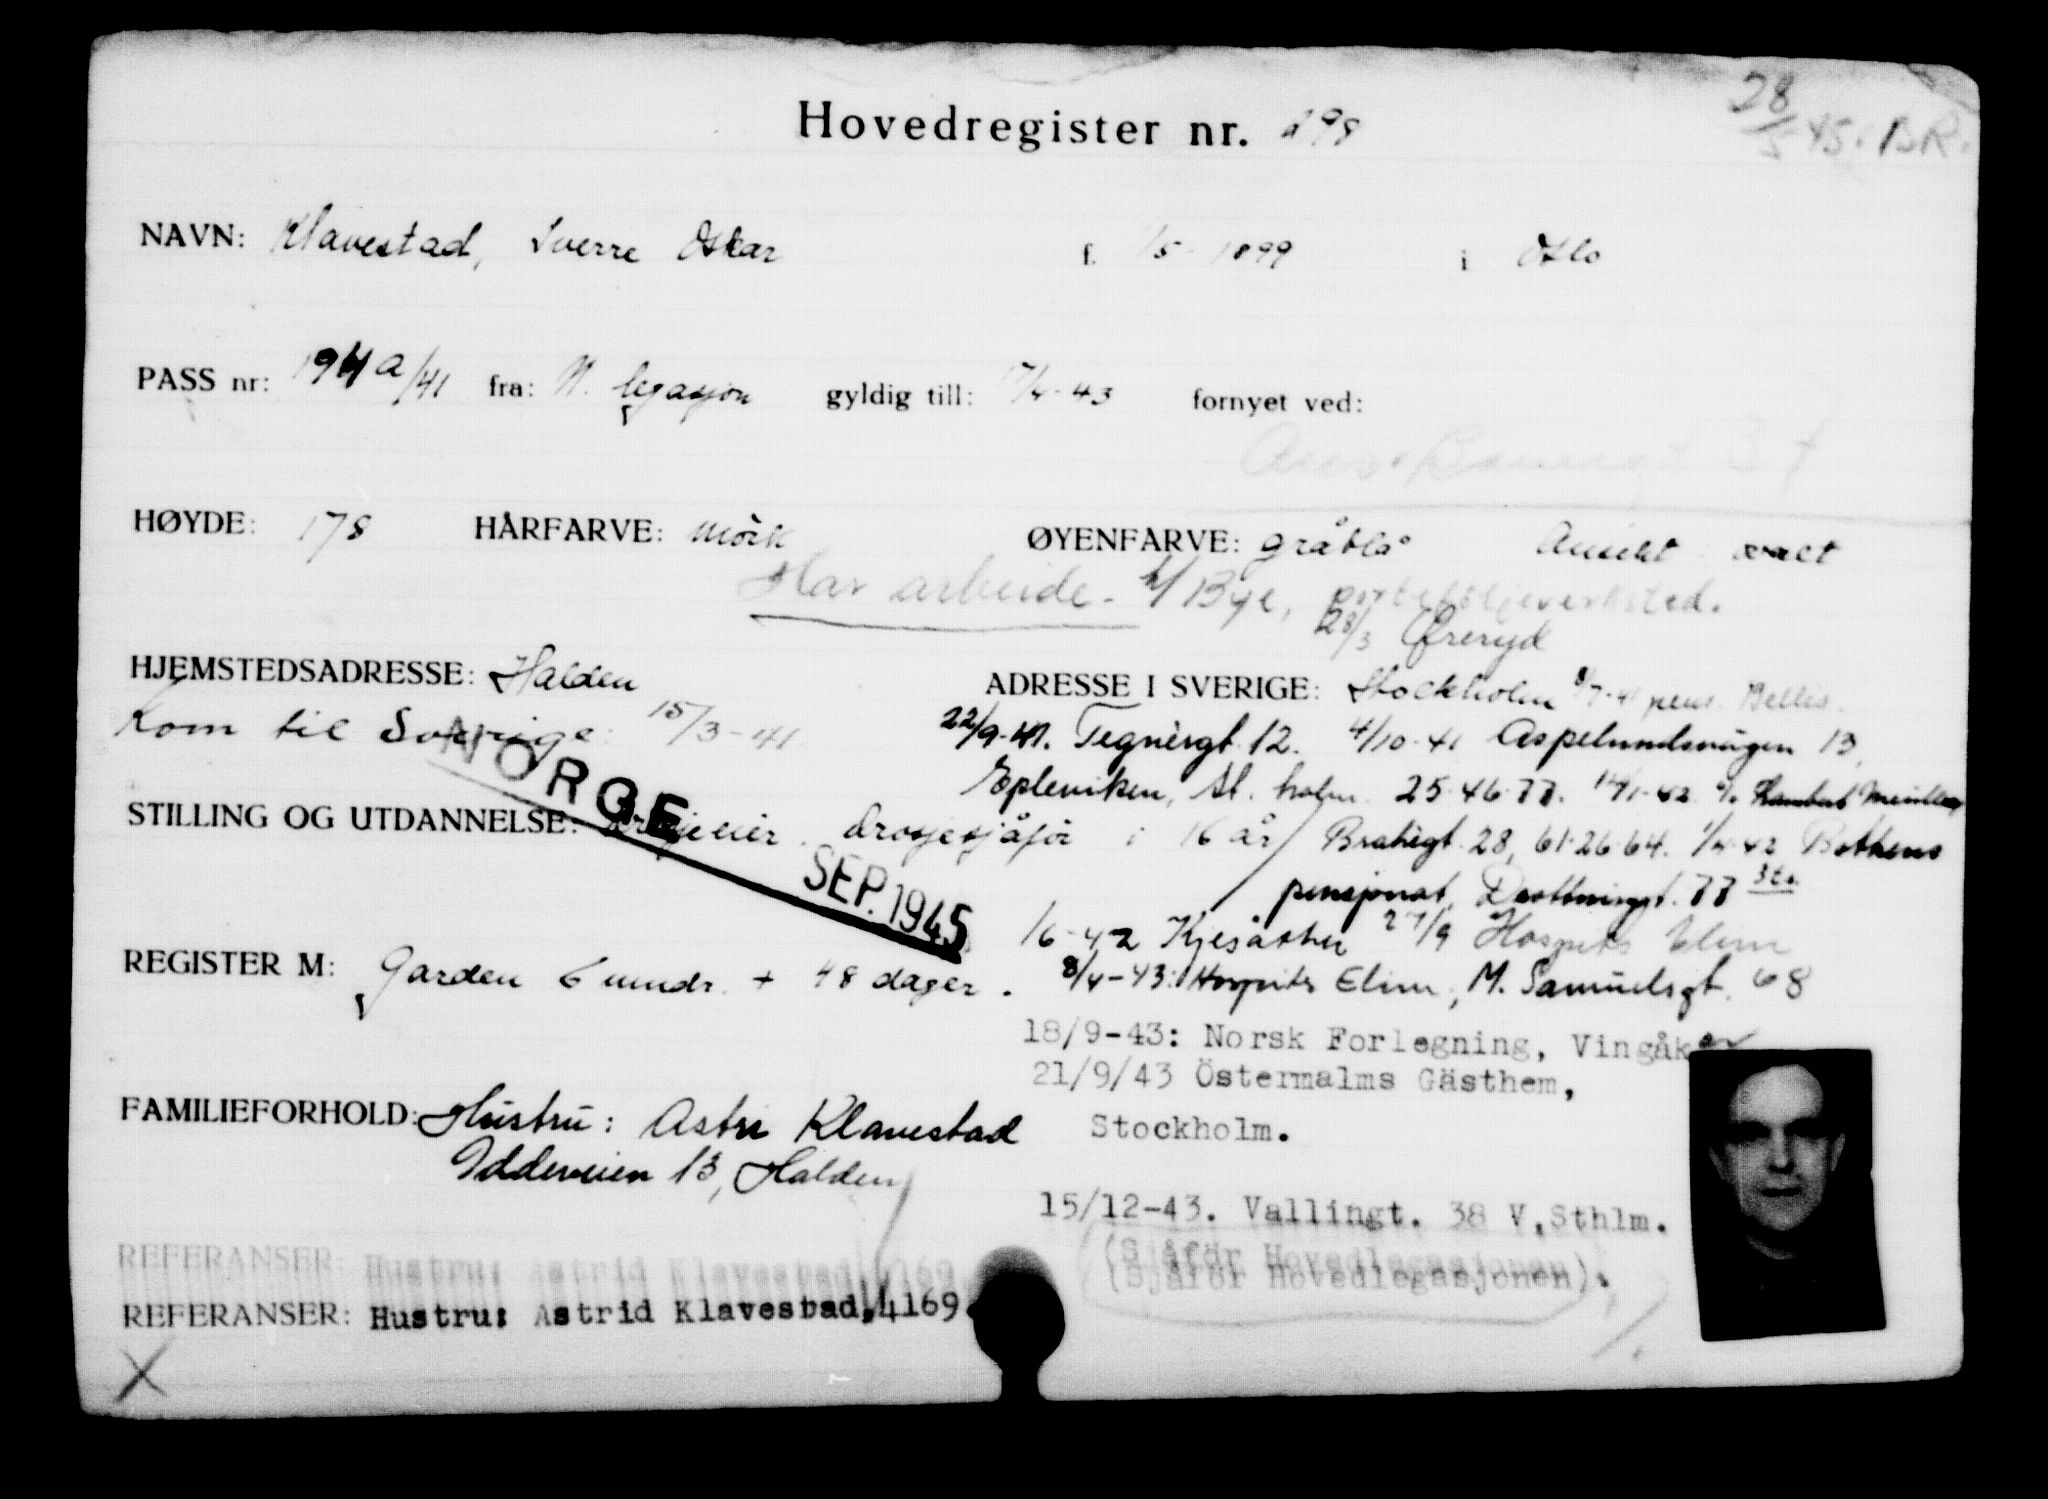 28/5 45. BR.
Hovedregister nr. 298
NAVN: Klavestad, Sverre Oskar f. 1/5 1899 i Oslo
PASS nr: 194a/41 fra: N. legasjon gyldig till: 17/4-43 fornyet ved:
HØYDE: 178 HÅRFARVE: mörk ØYENFARVE: gråblå Ansikt ovalt
Har arbeide h/ Bye,
28/3 Öreryd
HJEMSTEDSADRESSE: Halden ADRESSE I SVERIGE: Stockholm 8/7-41 pens. Bellis
Kom til Sverige: 15/3-41 22/9-41. Tegnérgt. 12. 4/10-41 Aspelundsvägen 13,
NORGE
SEP. 1945
Epleviken, St. holm. 25 46 77. 14/1-42 c/o
STILLING OG UTDANNELSE: drosjeeier. drosjesjåför i 16 år Brahegt. 28, 61 26 64. 1/4-42 Bothens
pensjonat, Drottninggt. 77 3 tr.
1/6-42 Kjesäter 27/9 Hospits Elim
REGISTER M: Garden 6 mndr. + 48 dager. 8/4-43: Hospits Elim, M. Samuelsgt. 68
18/9-43: Norsk Forlegning, Vingåker
21/9/43 Östermalms Gästhem,
Stockholm.
FAMILIEFORHOLD: Hustru: Astri Klavestad
Iddeveien 13, Halden
15/12-43. Vallingt. 38 V, Sthlm.
(Sjåför Hovedlegasjonen).
REFERANSER: Hustru: Astrid Klavestad, 4169
X